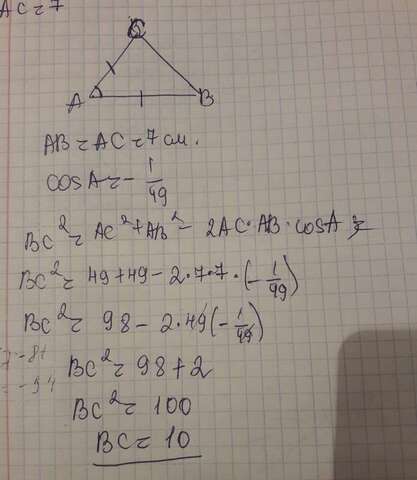 AC = 7
C
A
B
AB = AC = 7 см.
cosA = - 1/49
BC² = AC² + AB² - 2AC · AB · cosA
BC² = 49 + 49 - 2 · 7 · 7 · (- 1/49)
BC² = 98 - 2 · 49 (- 1/49)
BC² = 98 + 2
BC² = 100
BC = 10